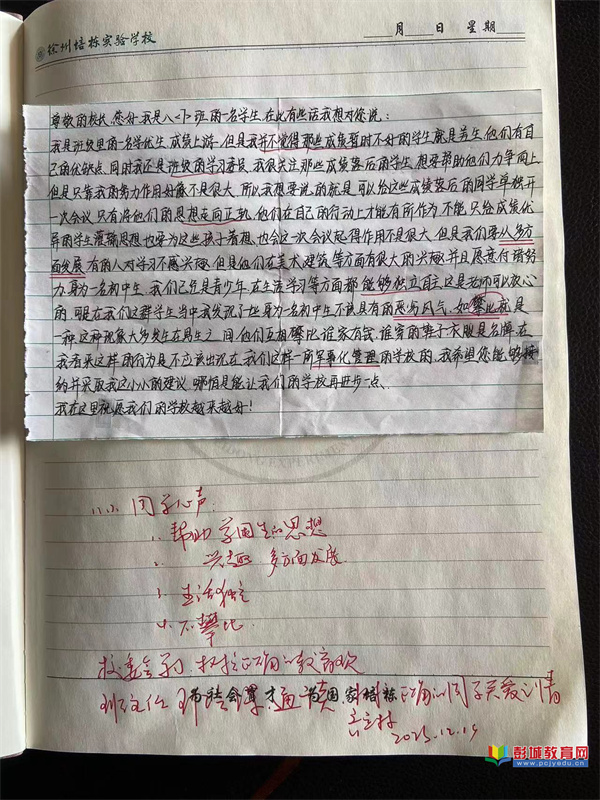 徐州培栋实验学校
月 日 星期
尊敬的校长,您好,我是八<1>班的一名学生,在此有些话我想对您说:
我是班级里面一名学优生,成绩上游,但是我并不觉得那些成绩暂时不好的学生就是差生,他们有自
己的优缺点,同时我还是班级的学习委员,我很关注那些成绩落后的学生,想要帮助他们力争向上
但是只靠我的努力作用好像不是很大,所以我想要说的就是可以给这些成绩落后的同学单独开
一次会议,只有将他们的思想走向正轨,他们在自己的行动上才能有所作为,不能只给成绩优
异的学生灌输思想也要为这些孩子着想,也会这一次会议起得作用不是很大,但是我们要从多方
面发展,有的人对学习不感兴趣,但是他们在美术、建筑等方面有很大的兴趣,并且愿意付诸努
力,身为一名初中生,我们已是青少年,在生活学习等方面都能够独立自主,这是老师可以放心
的,可是在我们这群学生当中我发现了一些身为一名初中生不该具有的恶劣风气,如攀比就是
一种,这种现象大多发生在男生之间,他们互相攀比,谁家有钱,谁穿的鞋子衣服是名牌,在
我看来这样的行为是不应该出现在我们这样一所军事化管理的学校的,我希望您能够接
纳并采取我这小小的建议,哪怕是能让我们的学校再进步一点、
我在这里祝愿我们的学校越来越好!
同学心声:
1. 帮助学困生的思想
2. 兴趣 多方面发展
3. 生活独立
4. 不攀比
为社会育才 为国家培栋
2025.12.19
彭城教育网
www.pcjyedu.cn